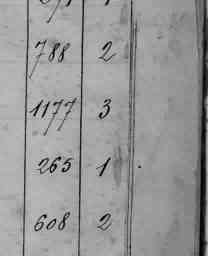 788 2
1177 3
265 1
608 2